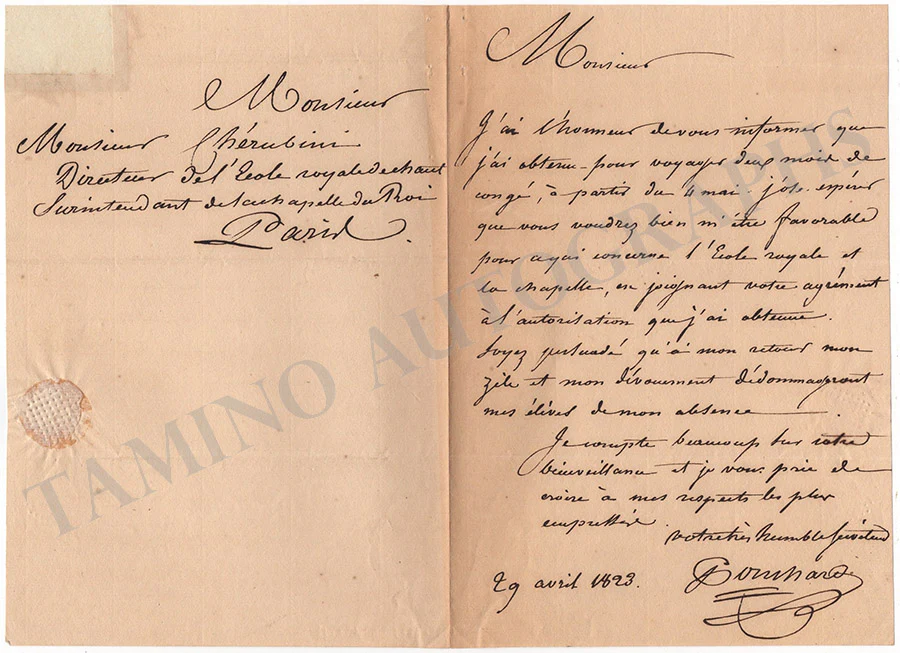 Monsieur
Monsieur Chérubini
Directeur de l'Ecole royale de chant
Surintendant de la chapelle du Roi
Paris.
Monsieur
J'ai l'honneur de vous informer que
j'ai obtenu pour voyager deux mois de
congé, à partir du 4 mai. j'ose espérer
que vous voudrez bien m'être favorable
pour ce qui concerne l'Ecole royale et
la chapelle, en joignant votre agrément
à l'autorisation que j'ai obtenue.
Soyez persuadé qu'à mon retour mon
zèle et mon dévouement dédommageront
mes élèves de mon absence.
Je compte beaucoup sur votre
bienveillance et je vous prie de
croire à mes respects les plus
empressés.
votre très humble serviteur
29 avril 1823.
Ponchard
TAMINO AUTOGRAPHS